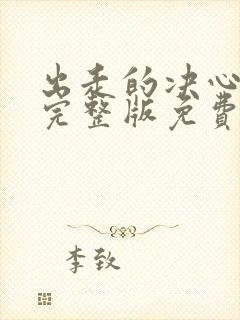 出走的决心
完整版免費
李致